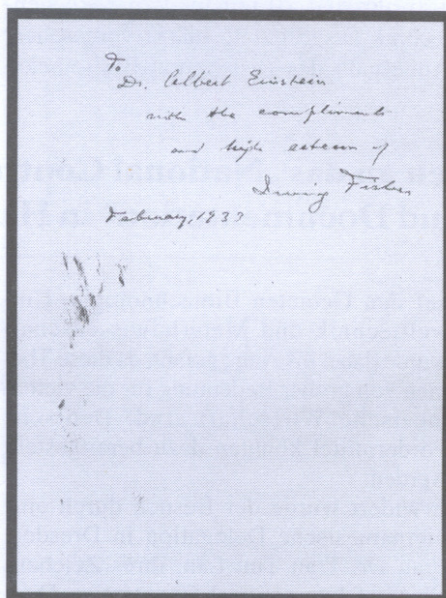 To
Dr. Albert Einstein
with the compliments
and high esteem of
Irving Fisher
February, 1933